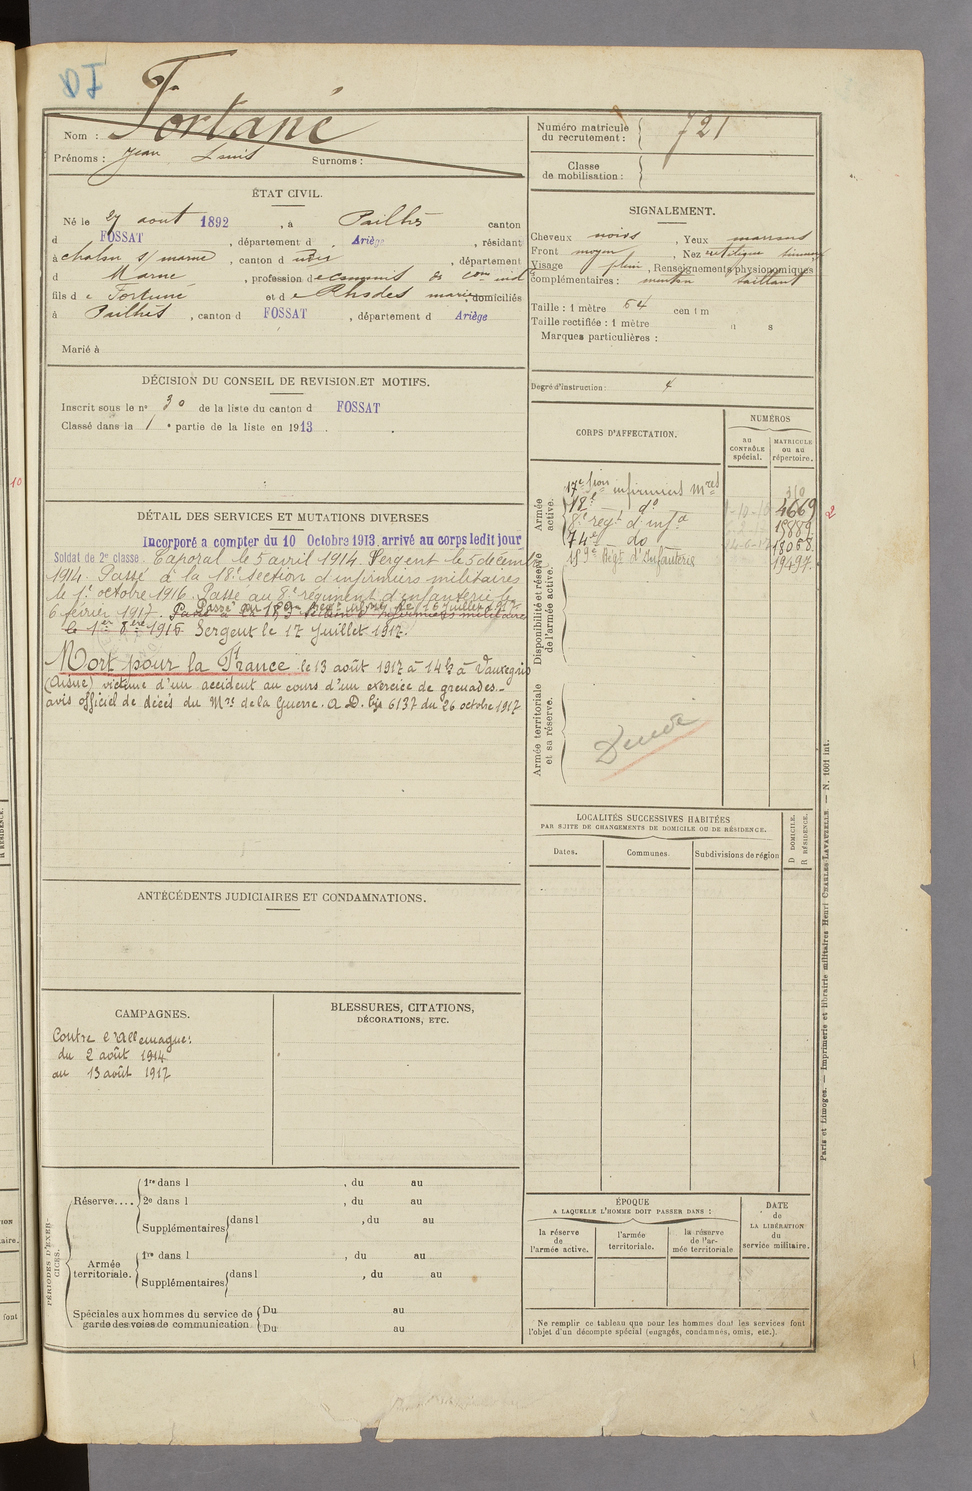 Nom : Fortané
Prénoms : Jean Louis Surnoms :
Numéro matricule du recrutement : 721
Classe de mobilisation :
ÉTAT CIVIL.
Né le 27 aout 1892, à Pailhès canton
d FOSSAT, département d Ariège, résidant
à chalon s/ marne, canton d dudit, département
d Marne, profession de comm{is} de
fils de Fortuné et de Rhodes marie domiciliés
à Pailhès, canton d FOSSAT, département d Ariège
Marié à
SIGNALEMENT.
Cheveux noirs, Yeux marrons
Front moyen, Nez rectiligne
Visage plein, Renseignements physionomiques
complémentaires : menton saillant
Taille : 1 mètre 64 centim
Taille rectifiée : 1 mètre
Marques particulières :
Degré d'instruction : 4
DÉCISION DU CONSEIL DE REVISION ET MOTIFS.
Inscrit sous le nº 30 de la liste du canton d FOSSAT
Classé dans la 1e partie de la liste en 1913.
DÉTAIL DES SERVICES ET MUTATIONS DIVERSES
Incorporé a compter du 10 Octobre 1913, arrivé au corps ledit jour
Soldat de 2e classe. Caporal le 5 avril 1914. Sergent le 5 décembre
1914. Passé à la 18e section d'infirmiers militaires
le 1er octobre 1916. Passé au 8e régiment d'infanterie le
6 février 1917. Passé à la 18e section d'infirmiers militaires
Passé au 189e Régt
le 16 juillet 1917
le 1er 8bre 1916 Sergent le 17 Juillet 1917.
Mort pour la France le 13 août 1917 à 14h à Vauxegris
(Aisne) victime d'un accident au cours d'un exercice de grenades -
avis officiel de décès du Mre de la Guerre. A.D. 6137 du 26 octobre 1917
CORPS D'AFFECTATION.
NUMÉROS
au CONTRÔLE spécial.
MATRICULE ou au répertoire.
Armée active.
17e Son infirmiers Mres
310
18e do 4669
8e regt d'infa 15889
74e do 18058
189e Régt d'Infanterie 19497.
10
2
Disponibilité et réserve de l'armée active.
Armée territoriale et sa réserve.
LOCALITÉS SUCCESSIVES HABITÉES
PAR SUITE DE CHANGEMENTS DE DOMICILE OU DE RÉSIDENCE.
Dates.
Communes.
Subdivisions de région
D DOMICILE.
R RÉSIDENCE.
ANTÉCÉDENTS JUDICIAIRES ET CONDAMNATIONS.
CAMPAGNES.
Contre l'Allemagne:
du 2 août 1914
au 13 août 1917
BLESSURES, CITATIONS,
DÉCORATIONS, ETC.
PÉRIODES D'EXERCICES.
Réserve....
1re dans l , du au
2e dans l , du au
Supplémentaires dans l , du au
Armée territoriale.
1re dans l , du au
Supplémentaires dans l , du au
Spéciales aux hommes du service de garde des voies de communication.
Du au
Du au
ÉPOQUE
A LAQUELLE L'HOMME DOIT PASSER DANS :
la réserve de l'armée active.
l'armée territoriale.
la réserve de l'armée territoriale
DATE de LA LIBÉRATION du service militaire.
Ne remplir ce tableau que pour les hommes dont les services font
l'objet d'un décompte spécial (engagés, condamnés, omis, etc.).
Paris et Limoges. — Imprimerie et librairie militaires Henri CHARLES-LAVAUZELLE. — N. 1001 int.